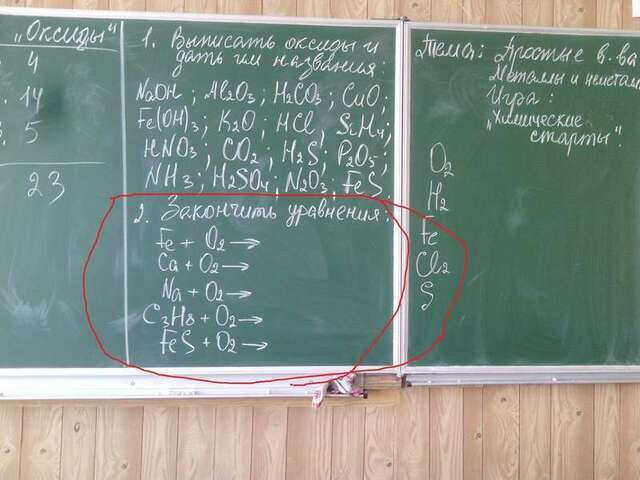 „Оксиды"
4
14
5
23
1. Выписать оксиды и
дать им названия:
NaOH ; Al2O3 ; H2CO3 ; CuO ;
Fe(OH)3 ; K2O ; HCl ; SiH4 ;
HNO3 ; CO2 ; H2S ; P2O5 ;
NH3 ; H2SO4 ; N2O3 ; FeS
2. Закончить уравнения:
Fe + O2 →
Ca + O2 →
Na + O2 →
C3H8 + O2 →
FeS + O2 →
Тема: Простые в. ва
Металлы и неметал
Игра :
„Химические
старты".
O2
H2
Fe
Cl2
S